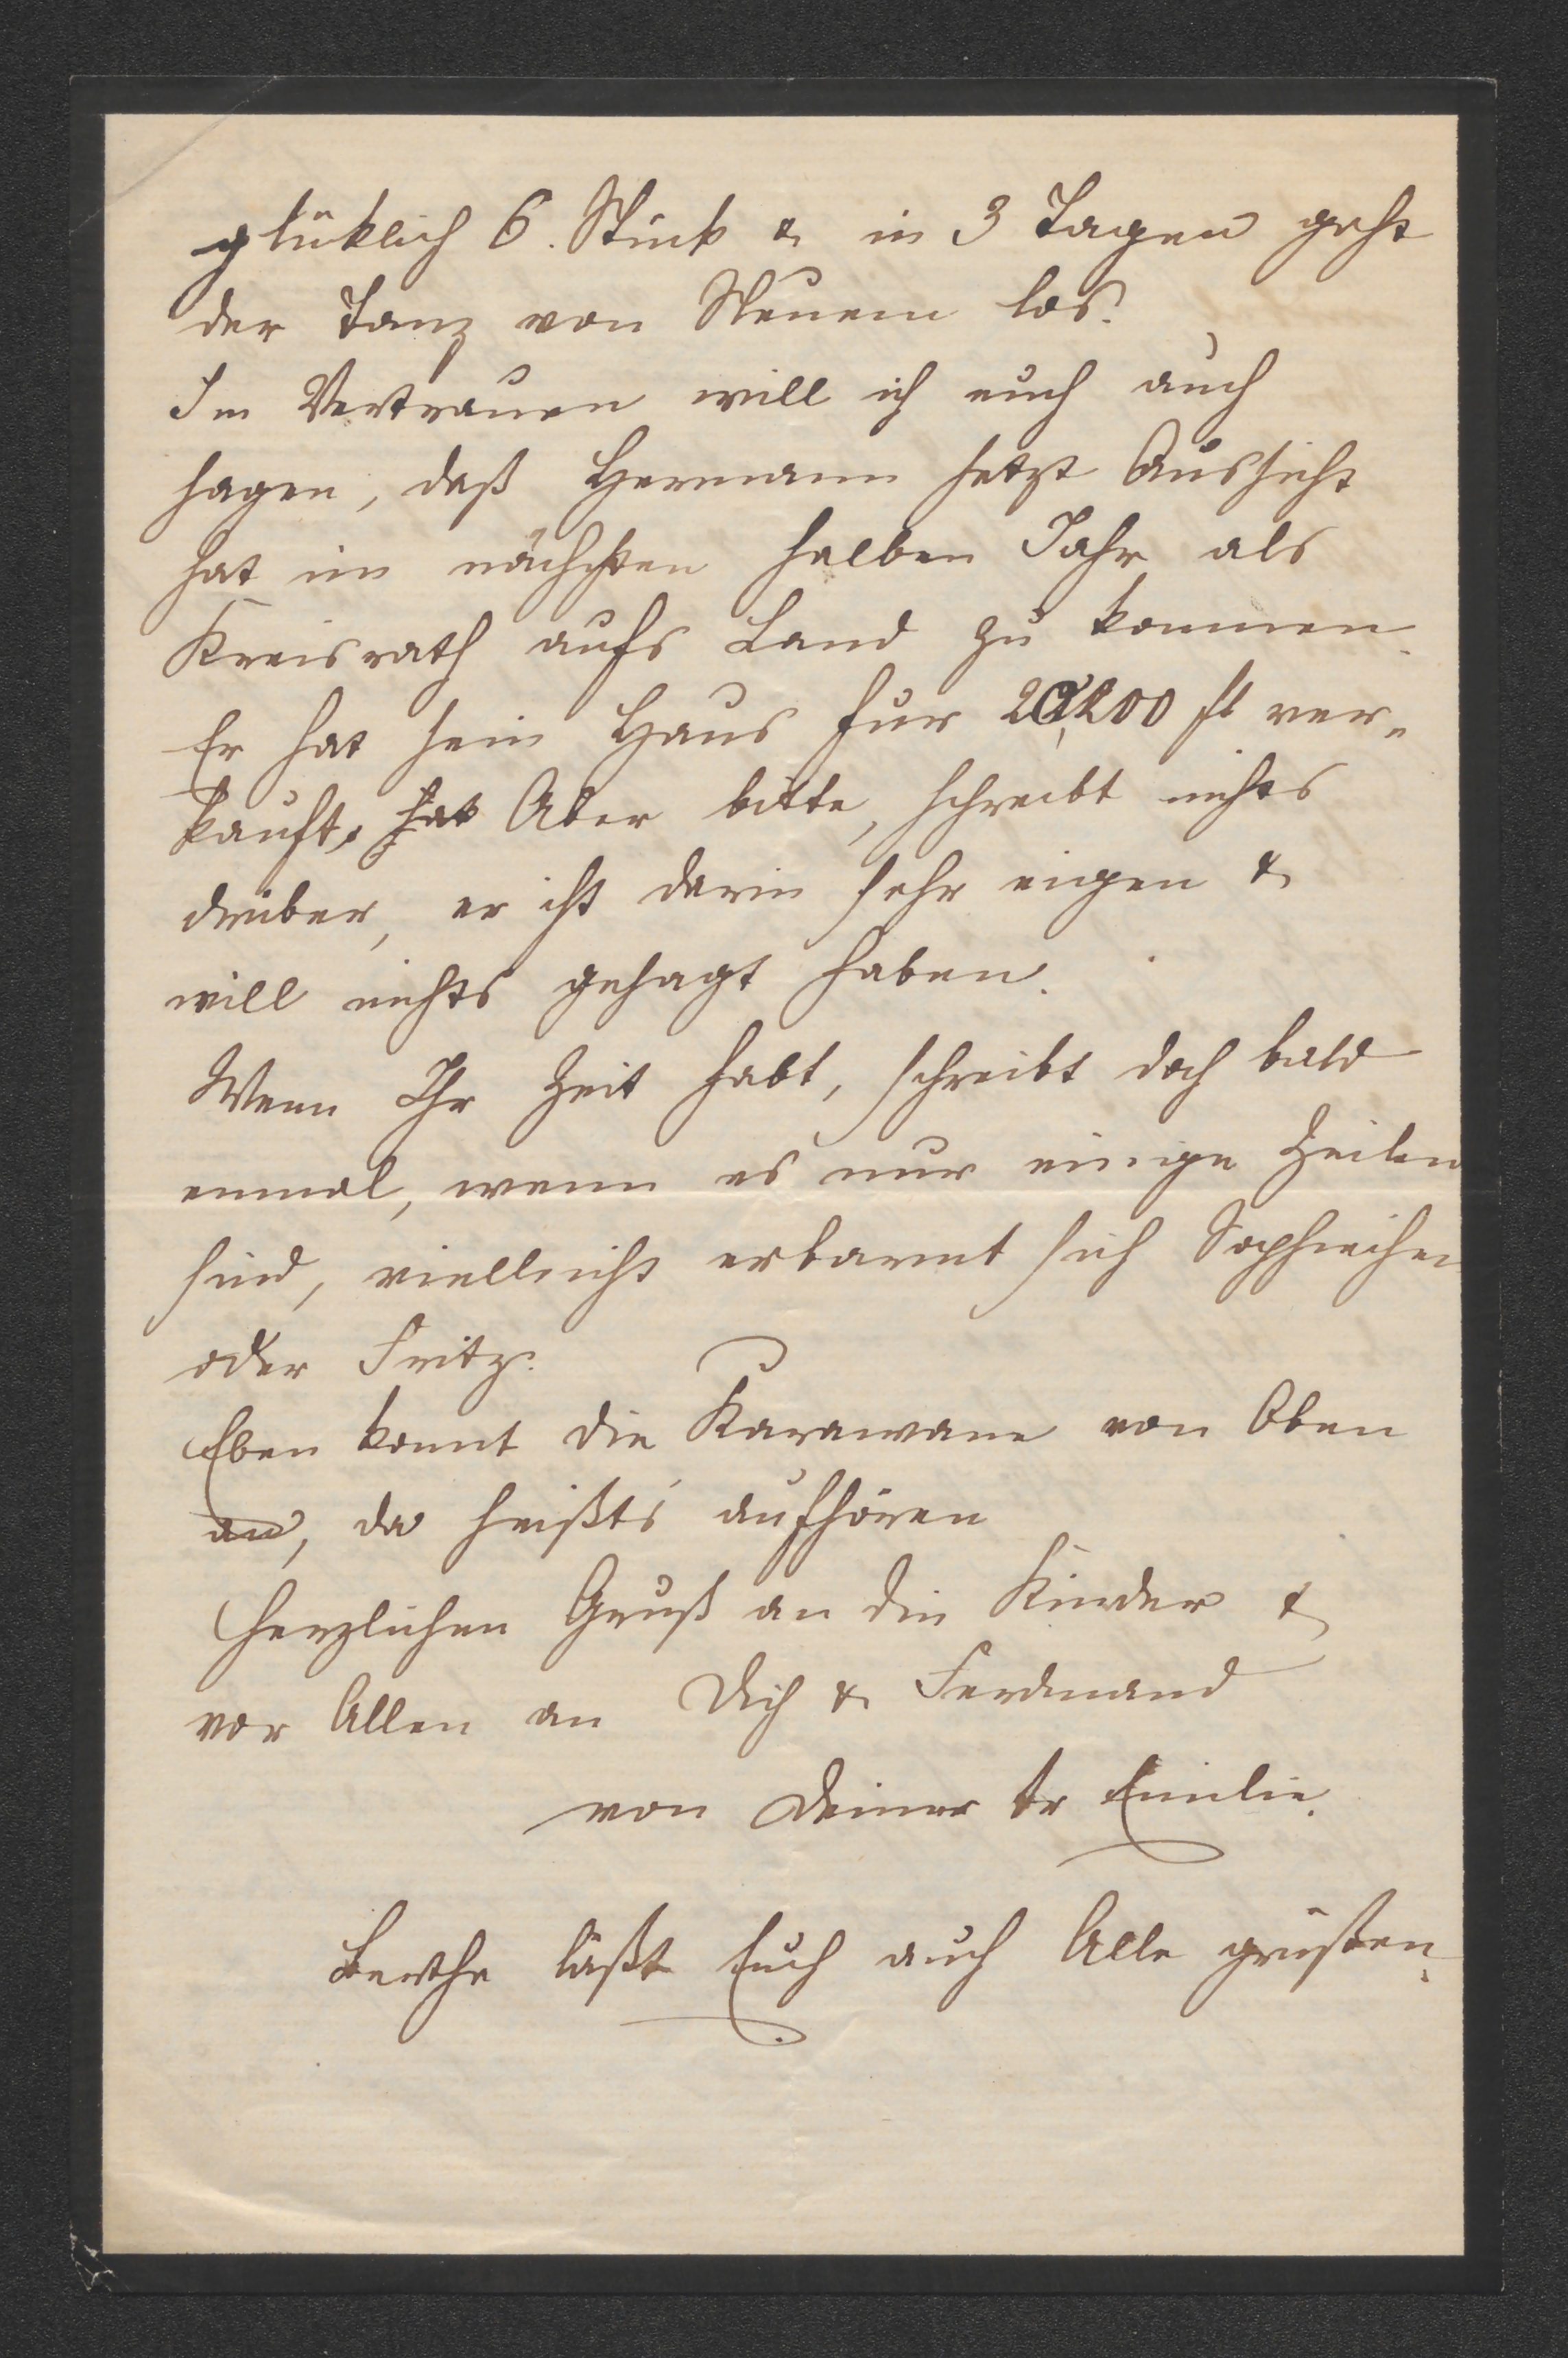 glüklich 6. Stück & in 3 Tagen geht
der Tanz von Neuem los.
Im Vertrauen will ich euch auch
sagen, daß Hermann jetzt Aussicht
hat im nächsten halben Jahr als
Kreisrath aufs Land zu kommen.
Er hat sein Haus für fl ver-
kauft, hat Aber bitte, schreibt nichts
drüber, er ist darin sehr eigen &
will nichts gesagt haben.
Wenn Ihr Zeit habt, schreibt doch bald
einmal, wenn es nur einige Zeilen
sind, vielleicht erbarmt sich Sophiechen
oder Fritz.
Eben kommt die Karawane von Oben
an, da heißts aufhören
Herzlichen Gruß an die Kinder &
vor Allen an Dich & Ferdinand
von Deiner tr Emilie.
Berthe läßt Euch auch Alle grüßen.